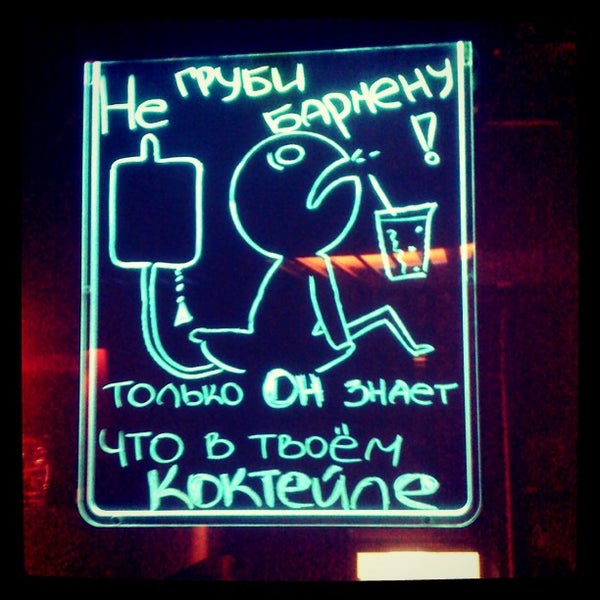 Не груби
бармену!
только Он знает
что в твоём
коктейле